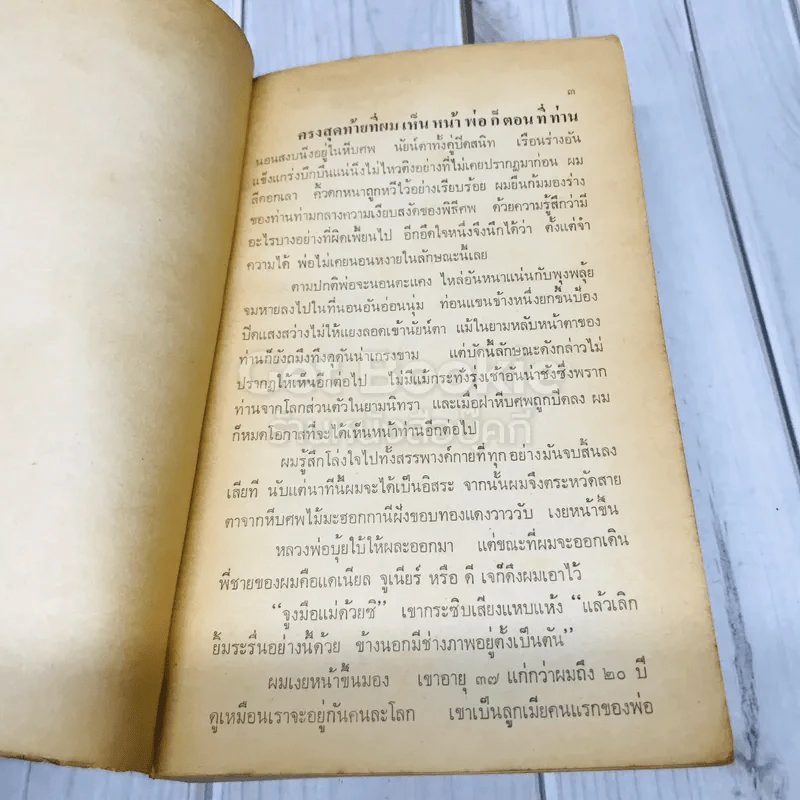 ๓
ครงสุดท้ายที่ผมเห็นหน้าพ่อก็ตอนที่ท่าน
นอนสงบนิ่งอยู่ในหีบศพ นัยน์ตาทั้งคู่ปิดสนิท เรือนร่างอัน
แข็งแกร่งบึกบึนแน่นิ่งไม่ไหวติงอย่างที่ไม่เคยปรากฏมาก่อน ผม
สีดอกเลา คิ้วดกหนาถูกหวีไว้อย่างเรียบร้อย ผมยืนก้มมองร่าง
ของท่านท่ามกลางความเงียบสงัดของพิธีศพ ด้วยความรู้สึกว่ามี
อะไรบางอย่างที่ผิดเพี้ยนไป อีกอึดใจหนึ่งจึงนึกได้ว่า ตั้งแต่จำ
ความได้ พ่อไม่เคยนอนหงายในลักษณะนี้เลย
ตามปกติพ่อจะนอนตะแคง ไหล่อันหนาแน่นกับพุงพลุ้ย
จมหายลงไปในที่นอนอันอ่อนนุ่ม ท่อนแขนข้างหนึ่งยกขึ้นป้อง
ปิดแสงสว่างไม่ให้แยงลอดเข้านัยน์ตา แม้ในยามหลับหน้าตาของ
ท่านก็ยังถมึงทึงดุดันน่าเกรงขาม แต่บัดนี้ลักษณะดังกล่าวไม่
ปรากฏให้เห็นอีกต่อไป ไม่มีแม้กระทั่งรุ่งเช้าอันน่าชังซึ่งพราก
ท่านจากโลกส่วนตัวในยามนิทรา และเมื่อฝาหีบศพถูกปิดลง ผม
ก็หมดโอกาสที่จะได้เห็นหน้าท่านอีกต่อไป
ผมรู้สึกโล่งใจไปทั้งสรรพางค์กายที่ทุกอย่างมันจบสิ้นลง
เสียที นับแต่นาทีนี้ผมจะได้เป็นอิสระ จากนั้นผมจึงตระหวัดสาย
ตาจากหีบศพไม้มะฮอกกานีฝังขอบทองแดงวาววับ เงยหน้าขึ้น
หลวงพ่อบุ้ยใบ้ให้ผละออกมา แต่ขณะที่ผมจะออกเดิน
พี่ชายของผมคือแดเนียล จูเนียร์ หรือ ดี เจก็ดึงผมเอาไว้
“จูงมือแม่ด้วยซิ” เขากระซิบเสียงแหบแห้ง “แล้วเลิก
ยิ้มระรื่นอย่างนี้ด้วย ข้างนอกมีช่างภาพอยู่ตั้งเป็นตัน”
ผมเงยหน้าขึ้นมอง เขาอายุ ๓๗ แก่กว่าผมถึง ๒๐ ปี
ดูเหมือนเราจะอยู่กันคนละโลก เขาเป็นลูกเมียคนแรกของพ่อ